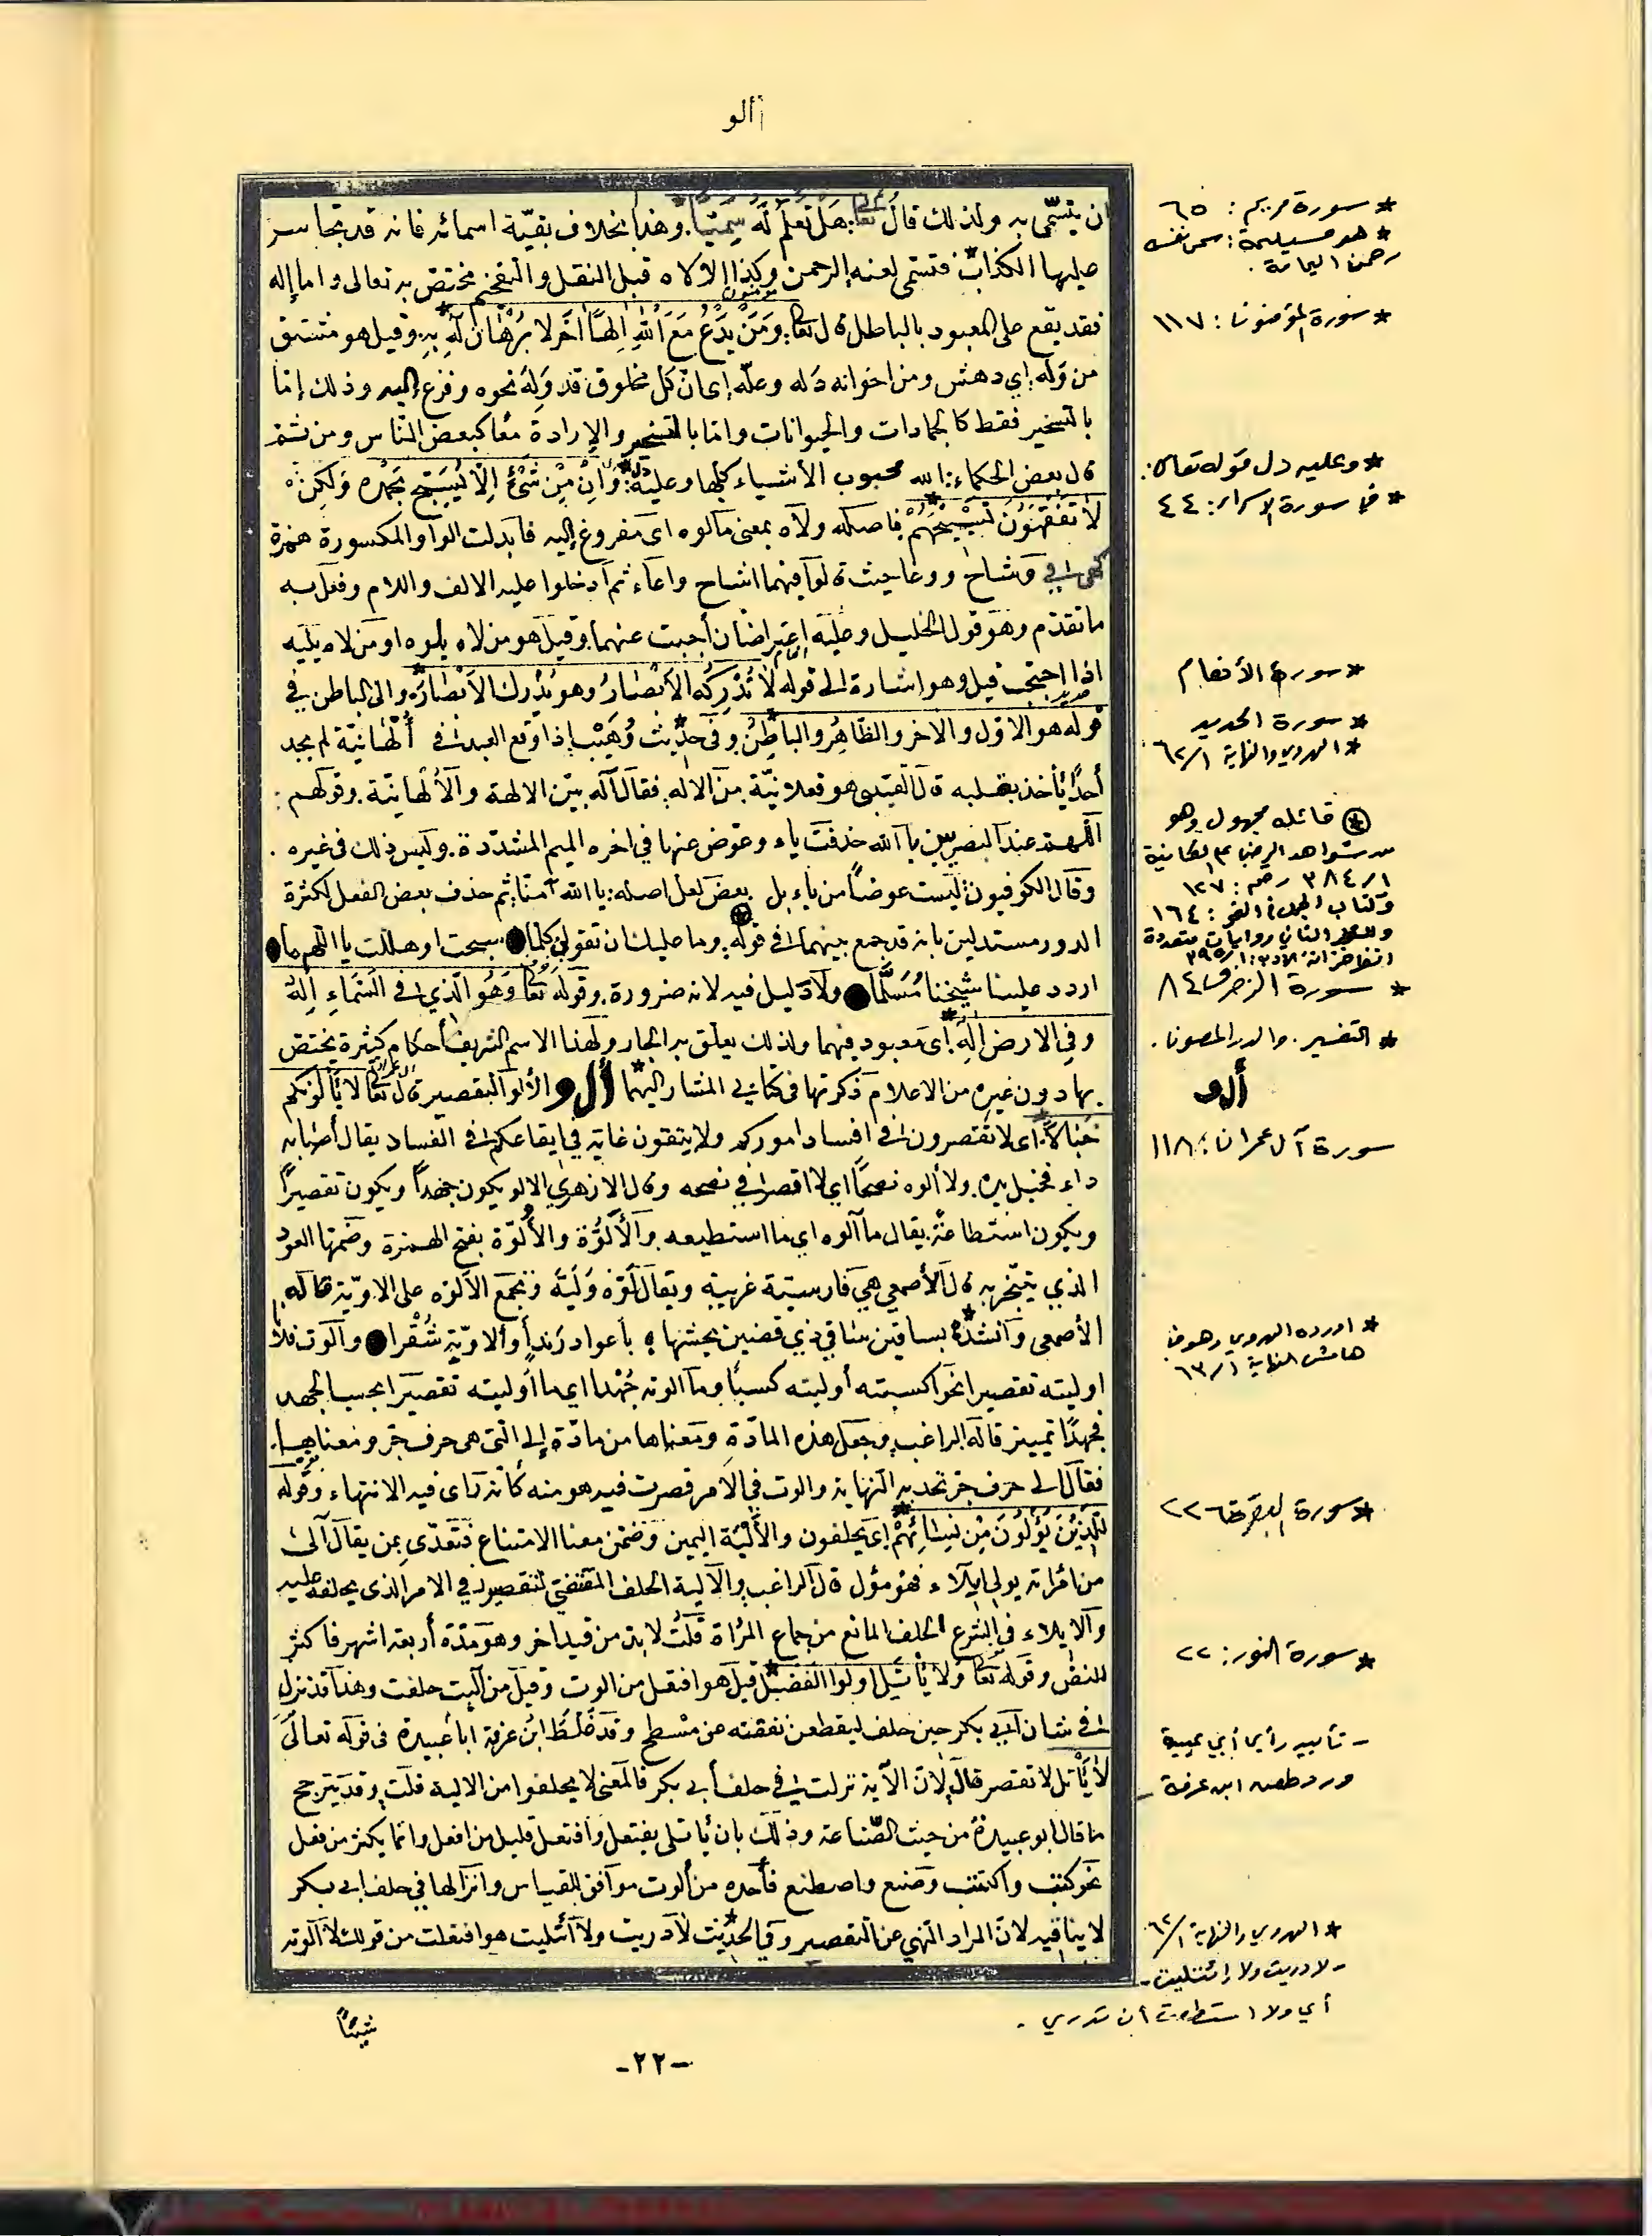 ألو
ان يتسمّى به ولذلك قال تعا: هَل تَعلمُ لَهُ سَمِيّاً. وهذا بخلاف بقيّة اسمائه فانه قد تجاسر
عليها الكذاب فتسمى لعنه الله الرحمن وكذا الإلاه قبل النقل والتفخيم مختص به تعالى واما إله
فقد يقع على المعبود بالباطل قال تعا: وَمَنْ يَدْعُ مَعَ اللهِ اِلهاً آخَر لا بُرْهانَ لَه بِه. وقيل هو مشتق
من وَلَه إي دهش ومن اخوانه دَله وعلَه إى انّ كل مخلوق قد وَلِهَ نحوه وفزع إليه وذلك إمّا
بالتسخير فقط كالجمادات والحيوانات واما بالتسخير والإرادة معاً كبعض الناس ومن ثمّ
قال بعض الحكماء: الله محبوب الأشياء كلها وعليه دلّ: وَاِنْ مِنْ شَئٍ اِلّا يُسَبّح بِحَمْدِه وَلكِنْ
لا تَفْقَهُونَ تَسْبيحَهُمْ فاصله ولاه بمعنى مألوه اى مفروغ إليه فابدلت الواو المكسورة همزة
كهى في وشاح ووعا حيث قالوا فيهما اشاح واعاء ثم أدخلوا عليه الالف واللام وفعل به
ما تقدم وهو قول الخليل وعليه اعتراضان أجبت عنهما وقيل هو من لاه يلوه او من لاه يليه
اذا احتجب قيل وهو اشارة الى قوله لا تُدْرِكُه الأبْصارُ وهو يُدْرِك الاَبْصارَ. والى الباطن في
قوله هو الاوّل والآخر والظاهِرُ والباطِنُ وفى حديث وُهَيْب إذا وقع العبد في أُلْهانِيّة لم يجد
أحداً يأخذ بقلبه قال القتبى هو فعلانيّة من الاله. فقال آله بيّن الالهة والأُلهانيّة. وقولهم:
اللهمّ عند البصريين يا الله حذفت ياء وعوّض عنها في اخره الميم المشدّدة. وليس ذلك فى غيره.
وقال الكوفيون: ليست عوضاً من ياء بل بعض لعل اصله: يا الله آمنّا ثم حذف بعض الفعل لكثرة
الدور مستدلين بانه قد جمع بينهما في قوله. وما عليك ان تقولي كلما سبحت او هللت يا اللهم ما
اردد علينا شيخنا مُسَلّماً ولا دليل فيه لانه ضرورة. وقوله تعا وَهُوَ الّذي في السَّماءِ اِلهٌ
وفي الارض إله. اى معبود فيهما ولذلك يعلق به الجار ولهذا الاسم الشريف أحكام كثيرة يختص
بها دون غيره من الاعلام ذكرتها فى كتابي المشار إليهما ألو الألو التقصير قال تعا لا يألونكم
خَبالاً. اى لا تقتصرون في افساد اموركم ولا يتقون غاية في ايقاعكم في الفساد يقال أصابه
داء فخبل يده. ولا ألوه نصحاً اي لا اقصر في نصحه وقال الازهري الالو يكون جهداً ويكون تقصيراً
ويكون استطاعةً. يقال ما آلوه اي ما استطيعه. والأَلُوّة والأُلُوّة بفتح الهمزة وضمها العود
الذي يتبخر به قال الأصمعي هي فارسية غريبة ويقال لُوّه وَلِيَّه وتجمع الألوّه على الاويّة قاله
الأصمعى وآنشد: بساقين ساقي ذي قضين يحشها باعواد رَنداً وألاويّةٍ شُقْرا والوت فلانا
اوليته تقصيرا نحو اكسبته أوليته كسباً وما الوته جُهْدا اي ما اوليته تقصيرا بحسب الجهد
فجهدًا تمييز قاله الراغب. وجعل هذه المادّة ومعناها من مادّة إلى التي هى حرف جر ومعناها.
فقال الى حرف جر تحد به النهاية والوت في الامر قصرت فيه هو منه كأنه رأى فيه الانتهاء وقوله
للَّذِيْنَ يُؤْلُونَ مِنْ نِسائِهُمْ إى يحلفون والأَلْيّة اليمين وضمن معنا الامتناع فتعدّى بمن يقال آلى
من امرأته يولي ايلاء فهو مؤل قال الراغب والآلية الحلف المقتضي لتقصير في الامر الذى يحلف عليه
والايلاء في الشرع الحلف المانع من جماع المرأة قلت لا بد من قيد اخر وهو مدّة أربعة اشهر فاكثر
للنص وقوله تعا وَلا يأتَل اولوا الفَضْل قيل هو افتعل من الوت وقيل من آليت حلفت وهذا قد نزل
في شان أبي بكر حين حلف ليقطعن نفقته عن مسطح وقد غلّط ابن عرفة ابا عبيدة فى قوله تعالى
لا يأتل لا تقتصر قال لانّ الآية نزلت في حلف أبى بكر فالمعنى لا يحلفوا من الالية قلت وقد يترجح
ما قال ابو عبيدةُ من حيث الصناعة وذلك بان يأتلى يفتعل وافتعل قليل من افعل وانما يكثر من فعل
نحو كتب واكتتب وصنع واصطنع فأخده من ألوت موافق للقياس وانزالها في حلف ابى بكر
لا ينافيه لان المراد النهي عن التقصير وفي الحديث لا دريت ولا ائتليت هو افتعلت من قولك لا آلوته
شيئاً
* سورة مريم: ٦٥
* هو مسيلمة: سمى نفسه
رحمن اليمامة.
* سورة المؤمنون: ١١٧
* وعليه دل قوله تعالى:
* في سورة الإسراء: ٤٤
* سورة الأنعام
* سورة الحديد
* الهروي والنهاية ٦٢/١
* قائله مجهول وهو
من شواهد الرضي على الكافية
٣٨٤/١ رقم: ١٢٧
وكتاب الجمل في النحو: ١٦٤
والشطر الثاني روايات متعددة
انظر خزانة الأدب: ١/ ٣٩٥
* سورة الزخرف ٨٤
* التفسير. والدر المصون.
ألو
سورة آل عمران: ١١٨
* اورده الهروي وهو في
هامش النهاية ٦٣/١
* سورة البقرة ٢٢٦
* سورة النور: ٢٢
- تأييد رأي أبي عبيدة
ورد طعن ابن عرفة -
* الهروي والنهاية ٦٢/١
- لا دريت ولا ائتليت -
أي ولا استطعت أن تدري.
-٢٢-